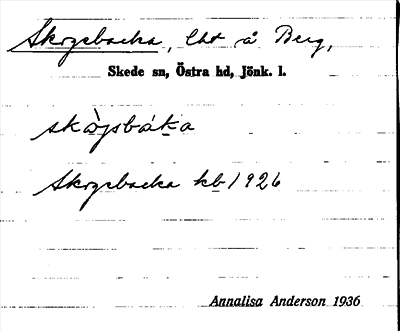 Skogsbacka, lht å Berg,
Skede sn, Östra hd, Jönk. l.
skògsbáka
Skogsbacka kb 1926
Annalisa Anderson 1936